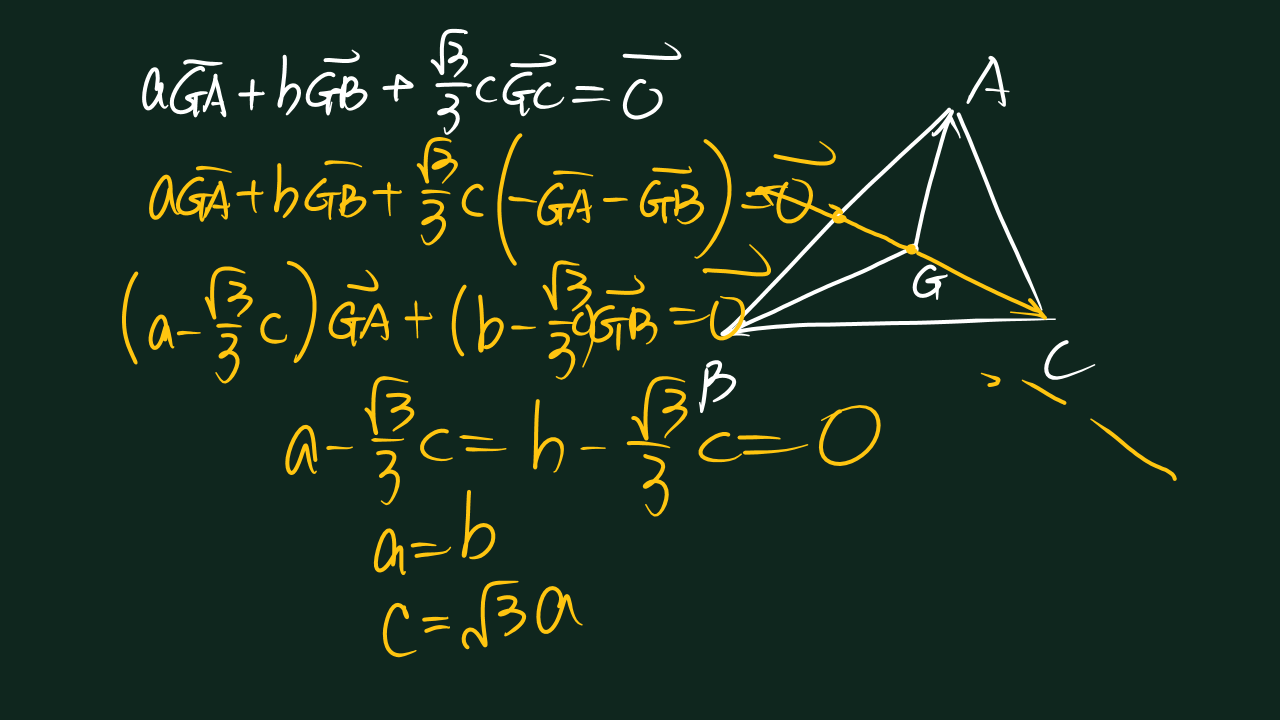 aGA⃗ + bGB⃗ + √3/3 cGC⃗ = 0⃗
aGA⃗ + bGB⃗ + √3/3 c(-GA⃗ - GB⃗) = 0⃗
(a - √3/3 c)GA⃗ + (b - √3/3 c)GB⃗ = 0⃗
a - √3/3 c = b - √3/3 c = 0
a = b
c = √3a
A
G
B
C